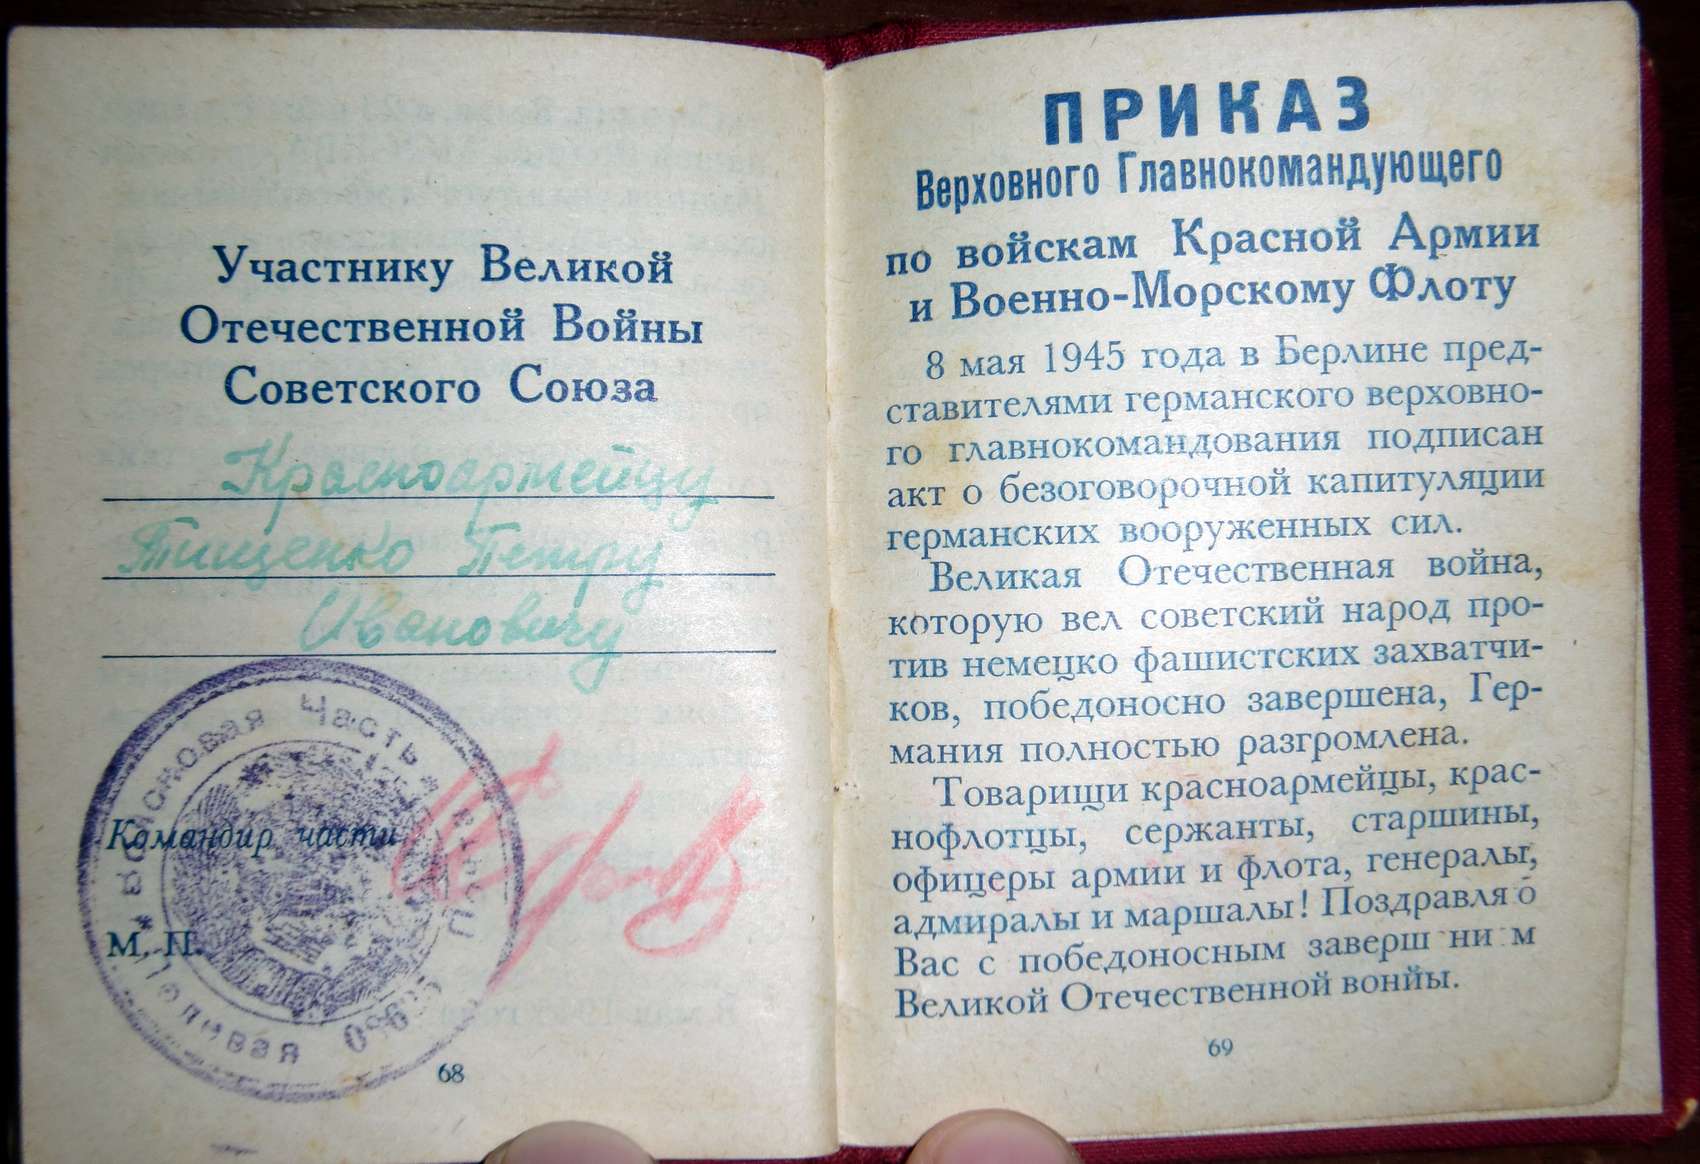 Участнику Великой
Отечественной Войны
Советского Союза
Красноармейцу
Тищенко Петру
Ивановичу
Командир части
М. П.
Войсковая Часть
Полевая
68
ПРИКАЗ
Верховного Главнокомандующего
по войскам Красной Армии
и Военно-Морскому Флоту
8 мая 1945 года в Берлине пред-
ставителями германского верховно-
го главнокомандования подписан
акт о безоговорочной капитуляции
германских вооруженных сил.
Великая Отечественная война,
которую вел советский народ про-
тив немецко фашистских захватчи-
ков, победоносно завершена, Гер-
мания полностью разгромлена.
Товарищи красноармейцы, крас-
нофлотцы, сержанты, старшины,
офицеры армии и флота, генералы,
адмиралы и маршалы! Поздравля ю
Вас с победоносным заверш ни м
Великой Отечественной вонйы.
69